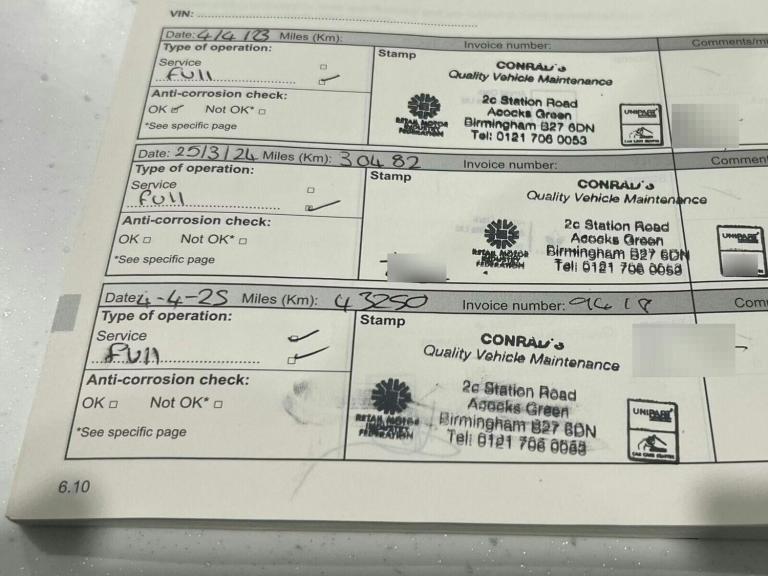 VIN:
Date: 4/4/23 Miles (Km): Invoice number: Comments/m
Type of operation: Stamp
Service
Full
Anti-corrosion check:
OK Not OK*
*See specific page
CONRAD's
Quality Vehicle Maintenance
2c Station Road
Acocks Green
Birmingham B27 6DN
Tel: 0121 706 0053
RETAIL MOTOR
INDUSTRY
FEDERATION
UNIPART
CAR CARE CENTRE
Date: 25/3/24 Miles (Km): 30482 Invoice number: Commen
Type of operation: Stamp
Service
Full
Anti-corrosion check:
OK Not OK*
*See specific page
CONRAD's
Quality Vehicle Maintenance
2c Station Road
Acocks Green
Birmingham B27 6DN
Tel: 0121 706 0053
RETAIL MOTOR
INDUSTRY
FEDERATION
UNIPART
Date: 4-4-25 Miles (Km): 43250 Invoice number: Com
Type of operation: Stamp
Service
Full
Anti-corrosion check:
OK Not OK*
*See specific page
CONRAD's
Quality Vehicle Maintenance
2c Station Road
Acocks Green
Birmingham B27 6DN
Tel: 0121 706 0053
RETAIL MOTOR
INDUSTRY
FEDERATION
UNIPART
CAR CARE CENTRE
6.10